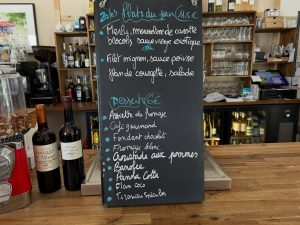 Les Plats du jour 17,5€
Merlu, mousseline de carotte
brocolis, sauce vierge exotique
ou
Filet mignon, sauce poivre
flan de courgette, salade
Desserts 6€
Assiette de fromage
Café gourmand
Fondant chocolat
Fromage blanc
Croustade aux pommes
Banofee
Panna Cotta
Flan coco
Tiramisu Spéculos